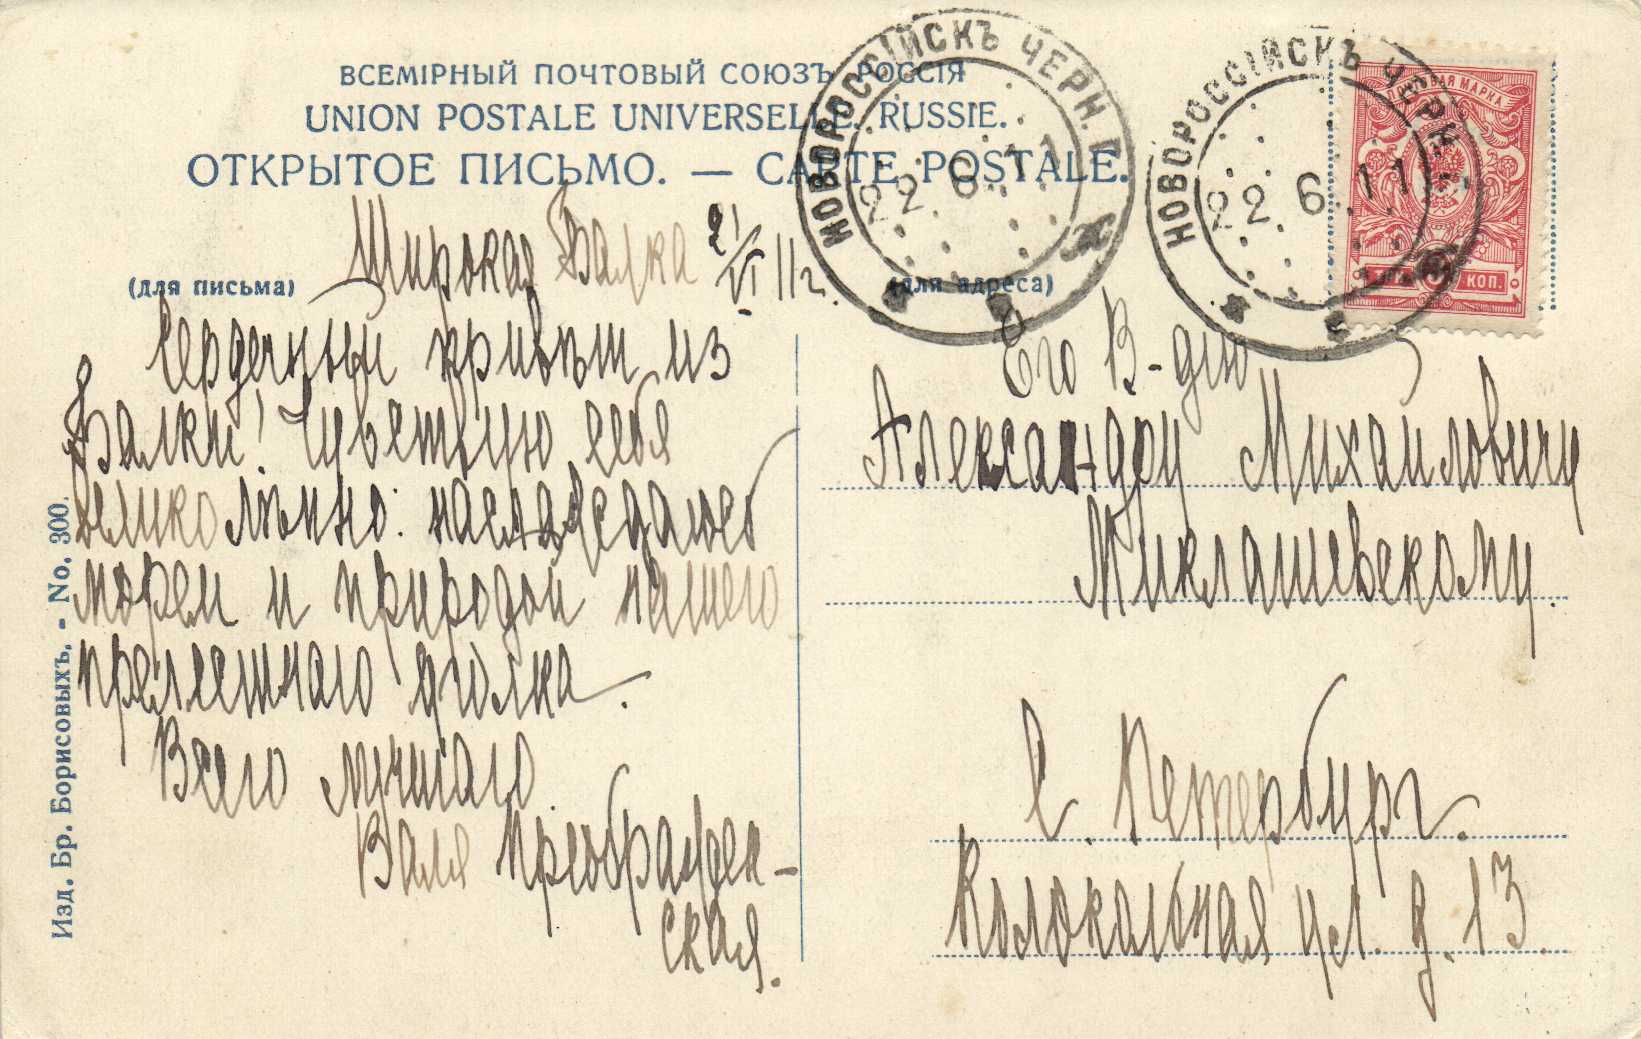 ВСЕМІРНЫЙ ПОЧТОВЫЙ СОЮЗЪ. РОССІЯ
UNION POSTALE UNIVERSELLE. RUSSIE.
ОТКРЫТОЕ ПИСЬМО. — CARTE POSTALE.
НОВОРОССІЙСКЪ ЧЕРН. Г.
22.6.11
НОВОРОССІЙСКЪ ЧЕРН. Г.
22.6.11
ПОЧТОВАЯ МАРКА
КОП.
(для письма)
Широкая Балка 21/VI 11 г.
Сердечный привѣт из
Балки! Чувствую себя
великолѣпно: наслаждаюсь
морем и природой нашего
прелестнаго уголка.
Всего лучшаго
Валя Преображен-
ская.
(для адреса)
Его В-дію
Александру Михайловичу
Миклашевскому.
С. Петербург.
Колокольная ул. д. 13.
Изд. Бр. Борисовыхъ. - No. 300.